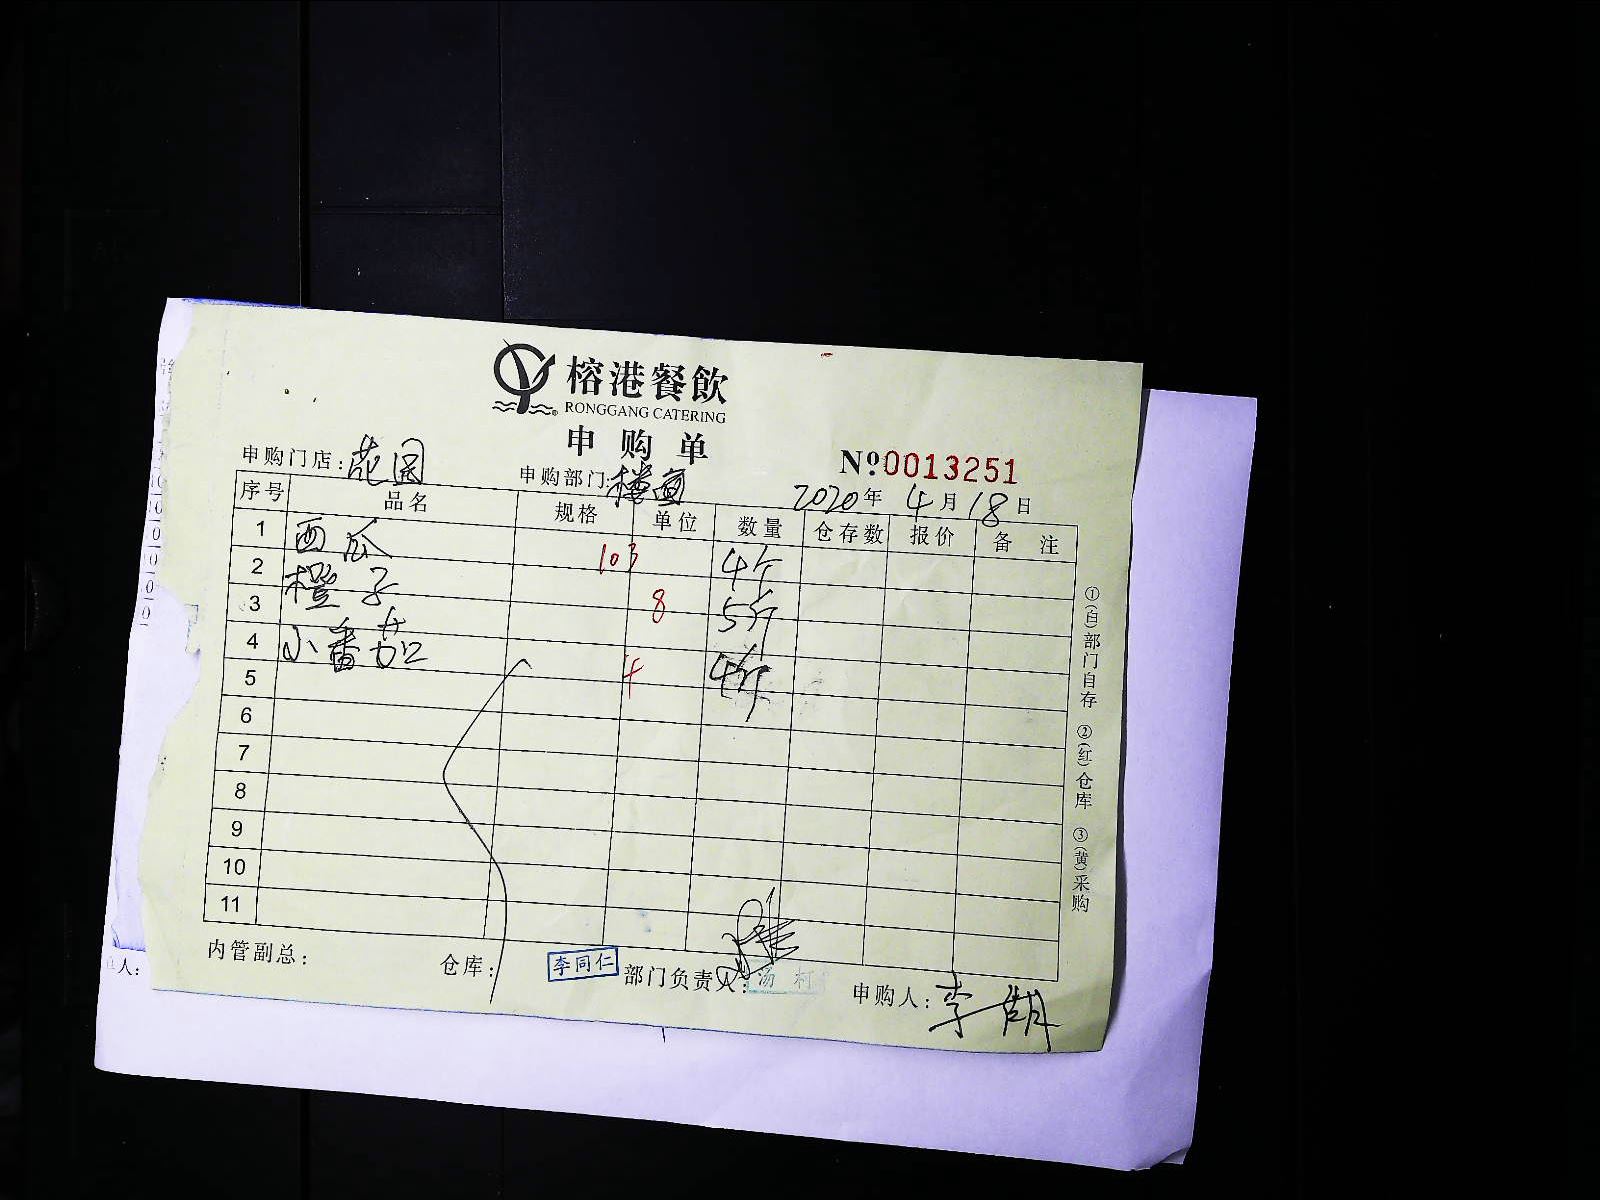 榕港餐飲
RONGGANG CATERING
申购单
申购门店：花园
申购部门：楼面
№0013251
2020年4月18日
序号 品名 规格 单位 数量 仓存数 报价 备注
1 西瓜 103 4个
2 橙子 8 5斤
3 小番茄 4 4斤
4
5
6
7
8
9
10
11
①(白)部门自存 ②(红)仓库 ③(黄)采购
内管副总： 仓库： 李同仁 部门负责人： 汤柯 申购人：李